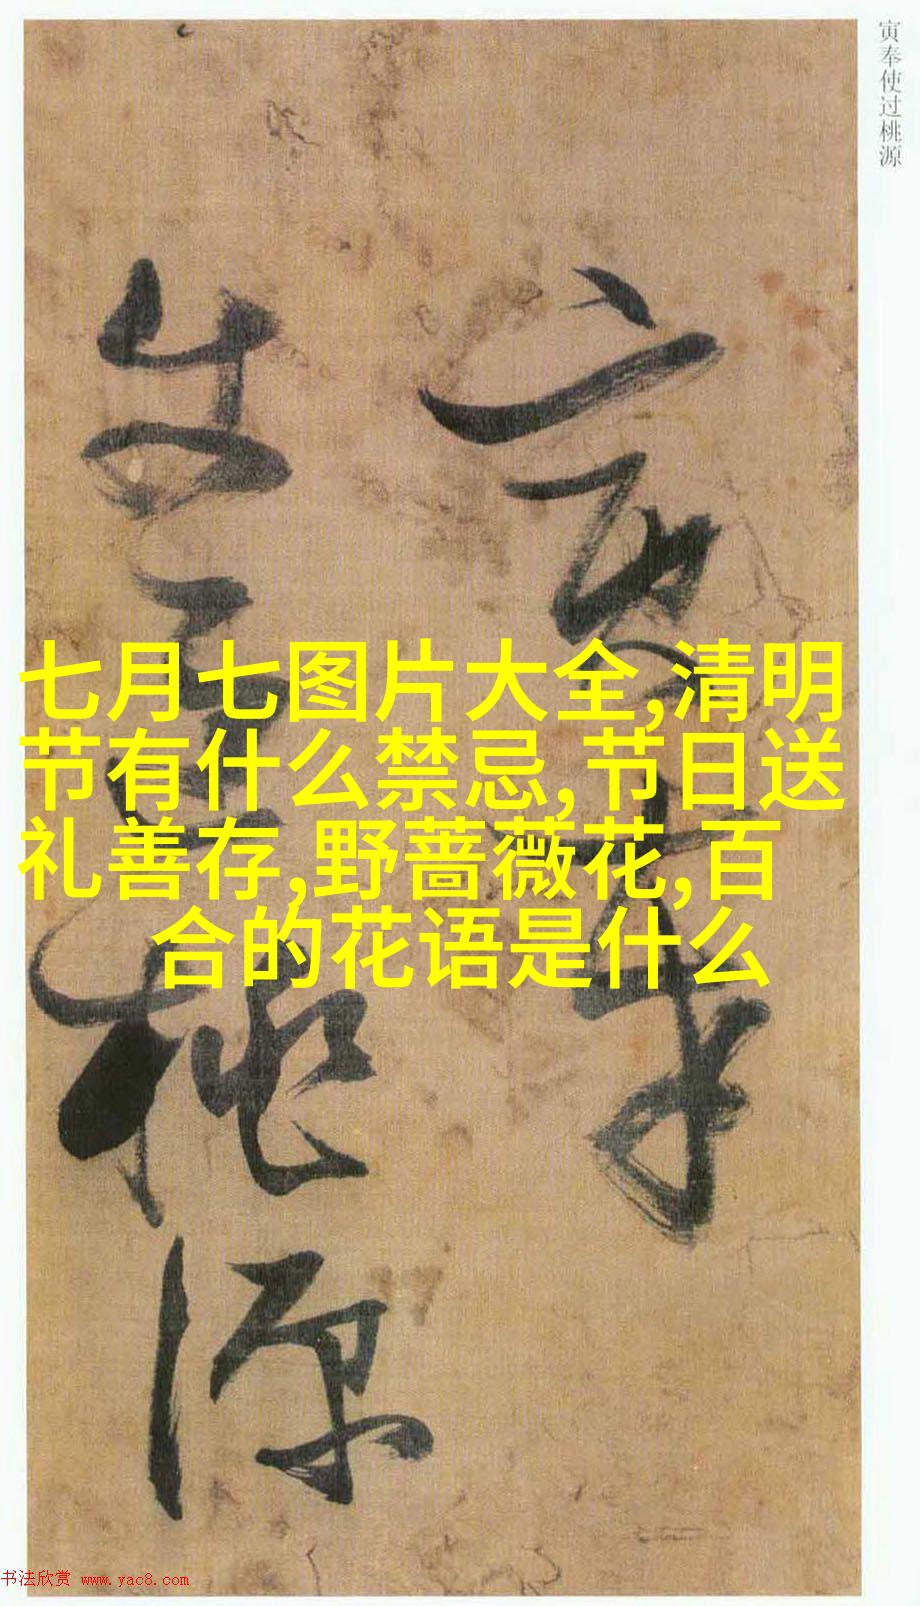 寅奉使过桃源
寅奉
使过桃源
七月七图片大全,清明
节有什么禁忌,节日送
礼善存,野蔷薇花,百
合的花语是什么
书法欣赏 www.yac8.com